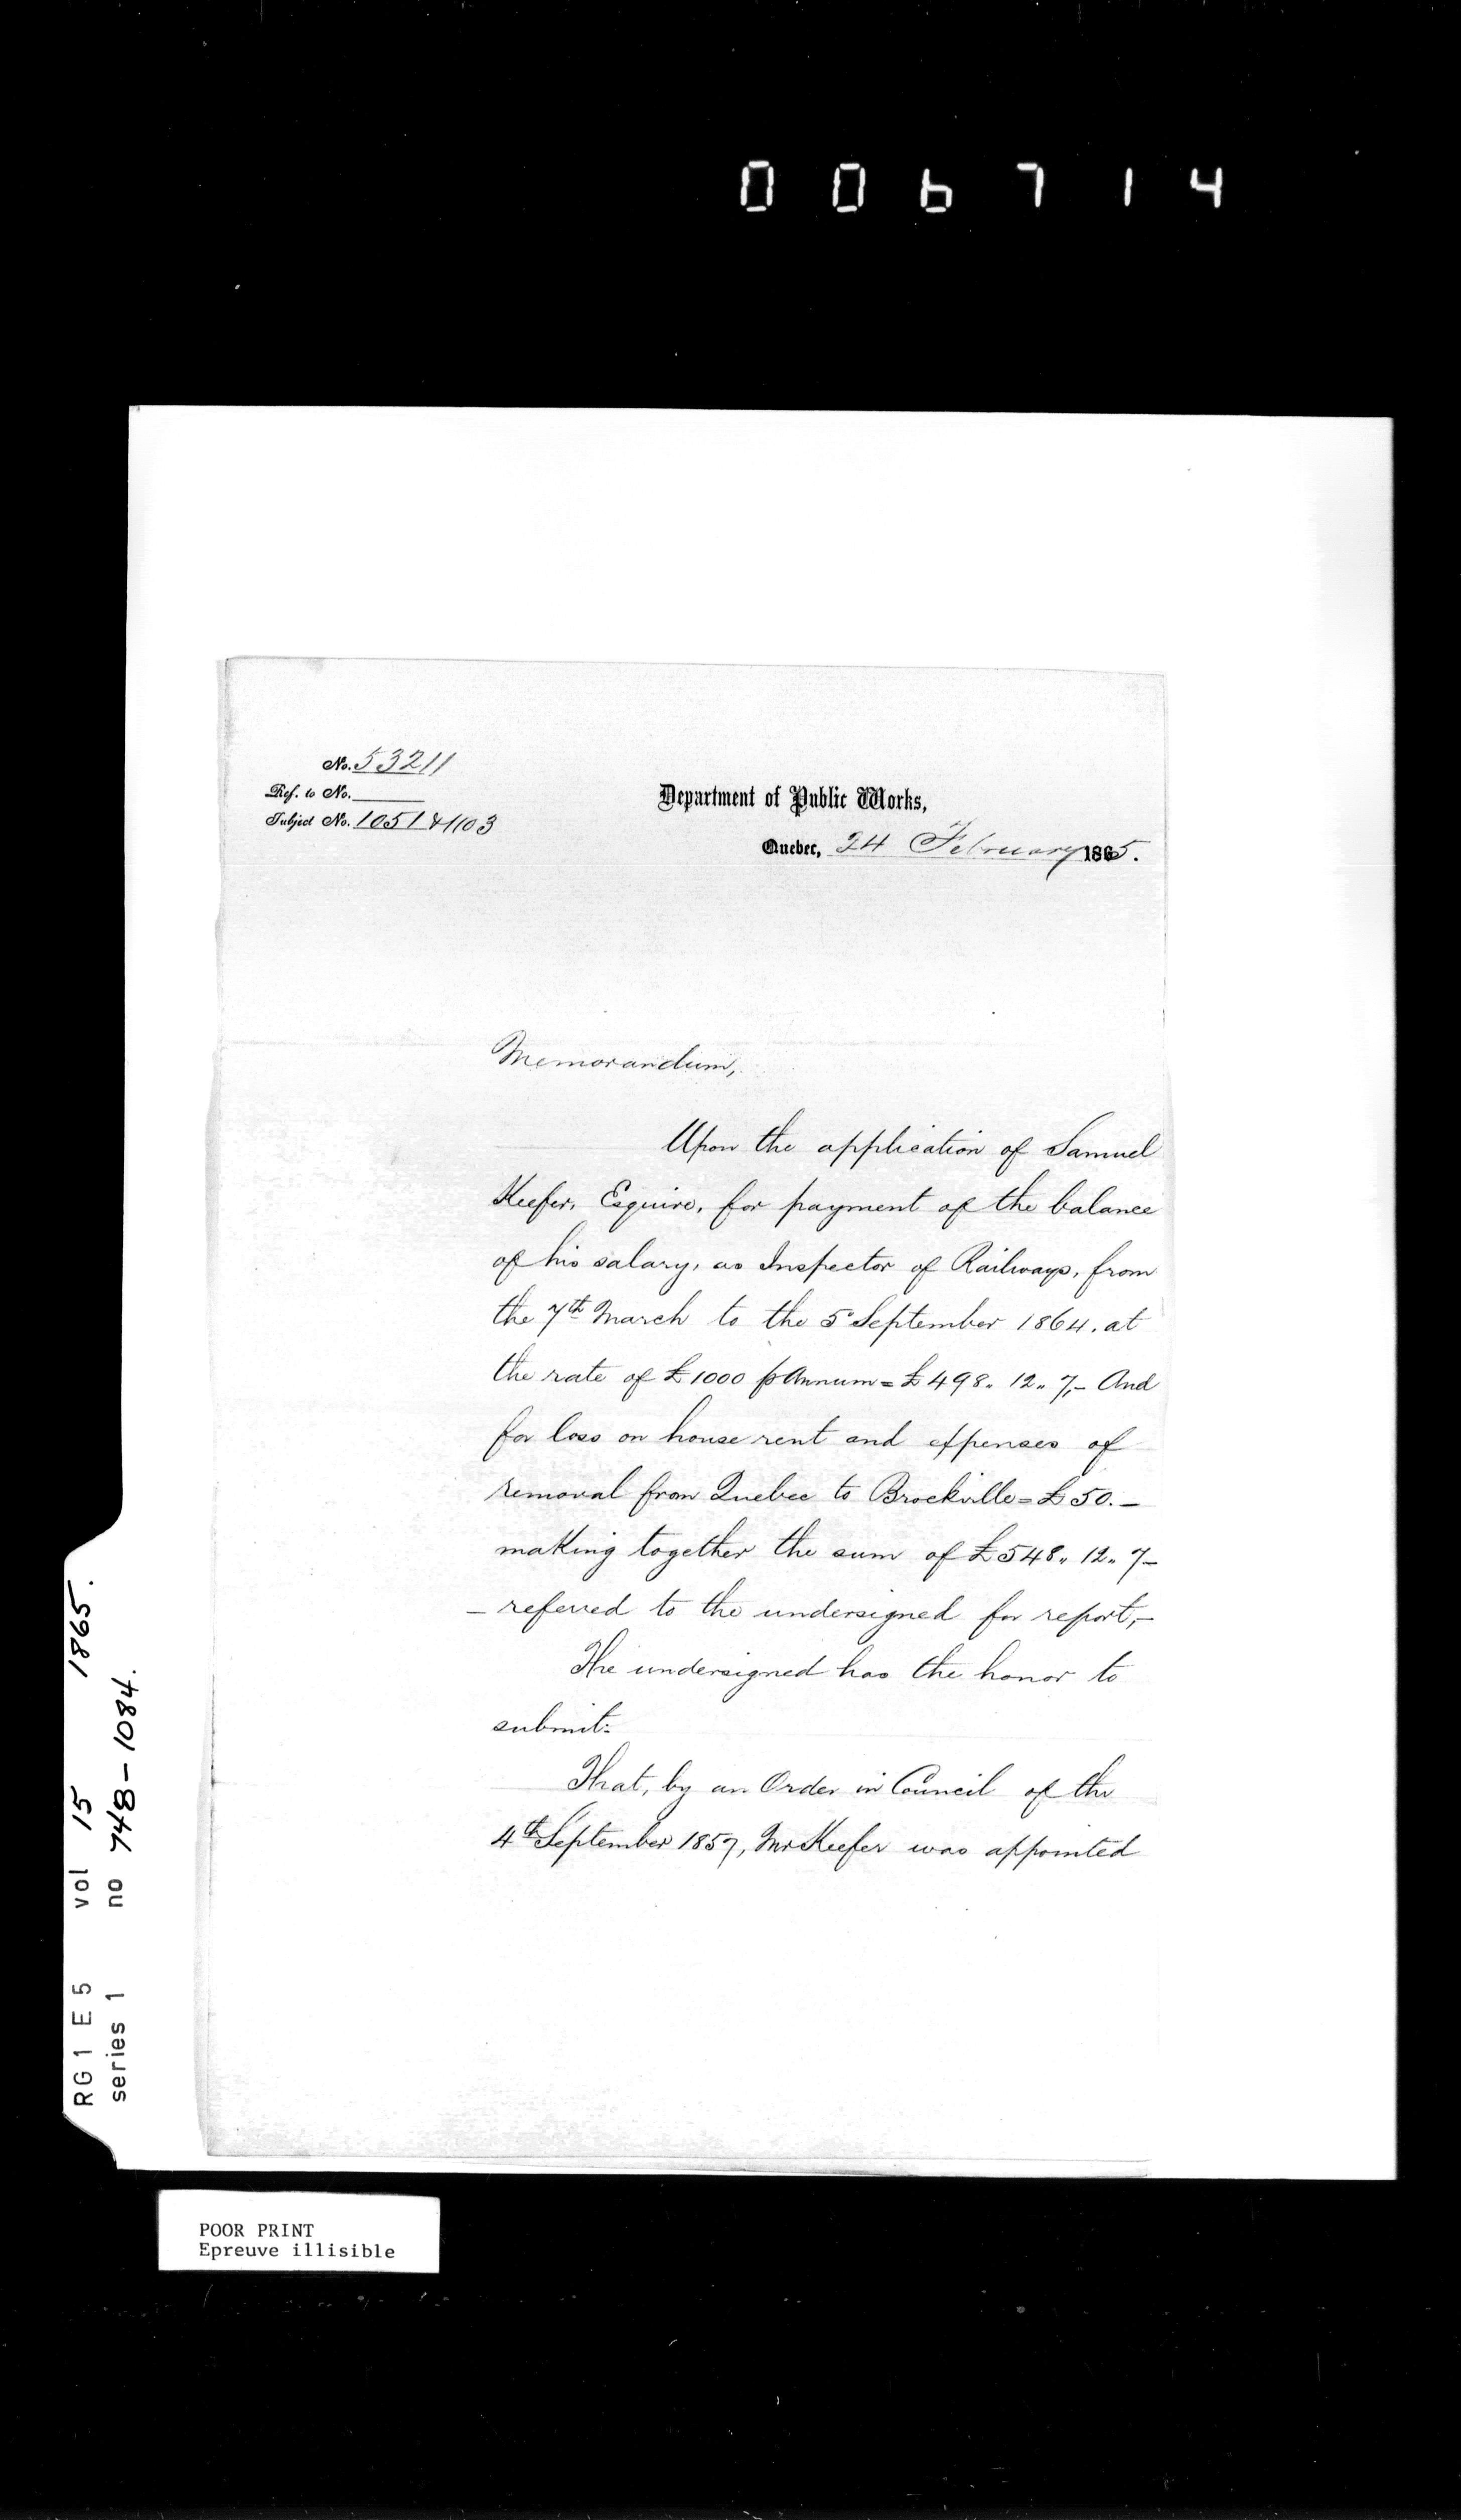 006714
No. 53211
Ref. to No.
Subject No. 1051 & 1103
Department of Public Works,
Quebec, 24 February 1865.
Memorandum,
Upon the application of Samuel
Keefer, Esquire, for payment of the balance
of his salary, as Inspector of Railways, from
the 7th March to the 5 September 1864. at
the rate of £1000 p Annum = £498,, 12,, 7,- And
for loss on house rent and expenses of
removal from Quebec to Brockville = £50.-
making together the sum of £548,, 12,, 7-
- referred to the undersigned for report,-
The undersigned has the honor to
submit:
That, by an Order in Council of the
4th September 1857, Mr Keefer was appointed
RG 1 E 5 vol 15 1865.
series 1 no 748-1084.
POOR PRINT
Epreuve illisible